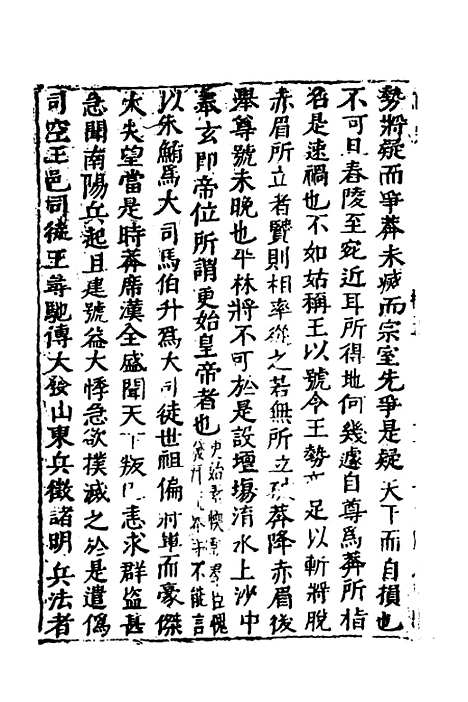 勢將疑而爭莽未滅而宗室先爭是疑天下而自損也
不可且舂陵至宛近耳所得地何幾遽自尊爲莽所指
名是速禍也不如姑稱王以號令王勢 足以斬將脫
赤眉所立者賢則相率從之若無所立破莽降赤眉後
舉尊號未晚也平林將不可於是設壇塲淯水上沙中
奉玄即帝位所謂更始皇帝者也更始素懦 羣臣愧 不能言
以朱鮪爲大司馬伯升爲大司徒世祖偏將軍而豪傑
大失望當是時莽席漢全盛聞天下叛 恚求群盜甚
急聞南陽兵起且建號益大悸急欲撲滅之於是遣僞
司空王邑司徒王尋馳傳大發山東兵徵諸明兵法者